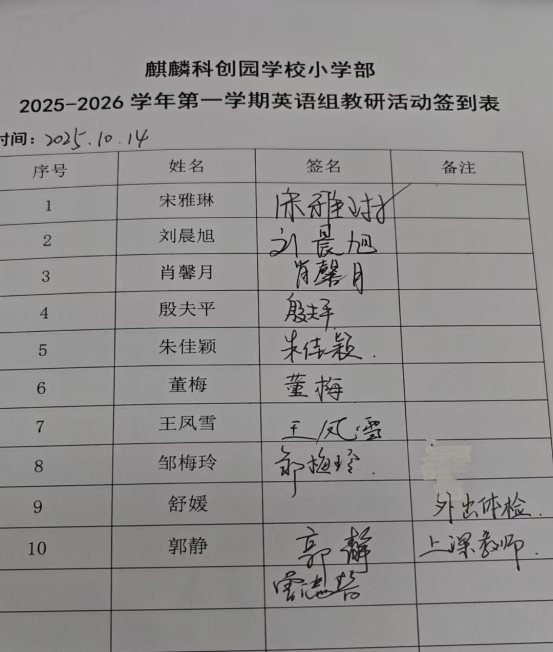 麒麟科创园学校小学部
2025-2026 学年第一学期英语组教研活动签到表
时间：2025.10.14
序号 姓名 签名 备注
1 宋雅琳 宋雅琳
2 刘晨旭 刘晨旭
3 肖馨月 肖馨月
4 殷夫平 殷夫平
5 朱佳颖 朱佳颖.
6 董梅 董梅
7 王凤雪 王凤雪
8 邹梅玲 邹梅玲.
9 舒媛 外出体检.
10 郭静 郭静 上课教师.